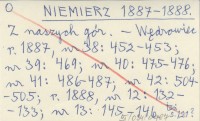 O NIEMIERZ 1887-1888.
Z naszych gór. - Wędrowiec
r. 1887, nr 38: 452-453;
nr 39: 469; nr 40: 475-476;
nr 41: 486-487; nr 42: 504
-505; r. 1888, nr 12: 132-
-133; nr 13: 145-146.